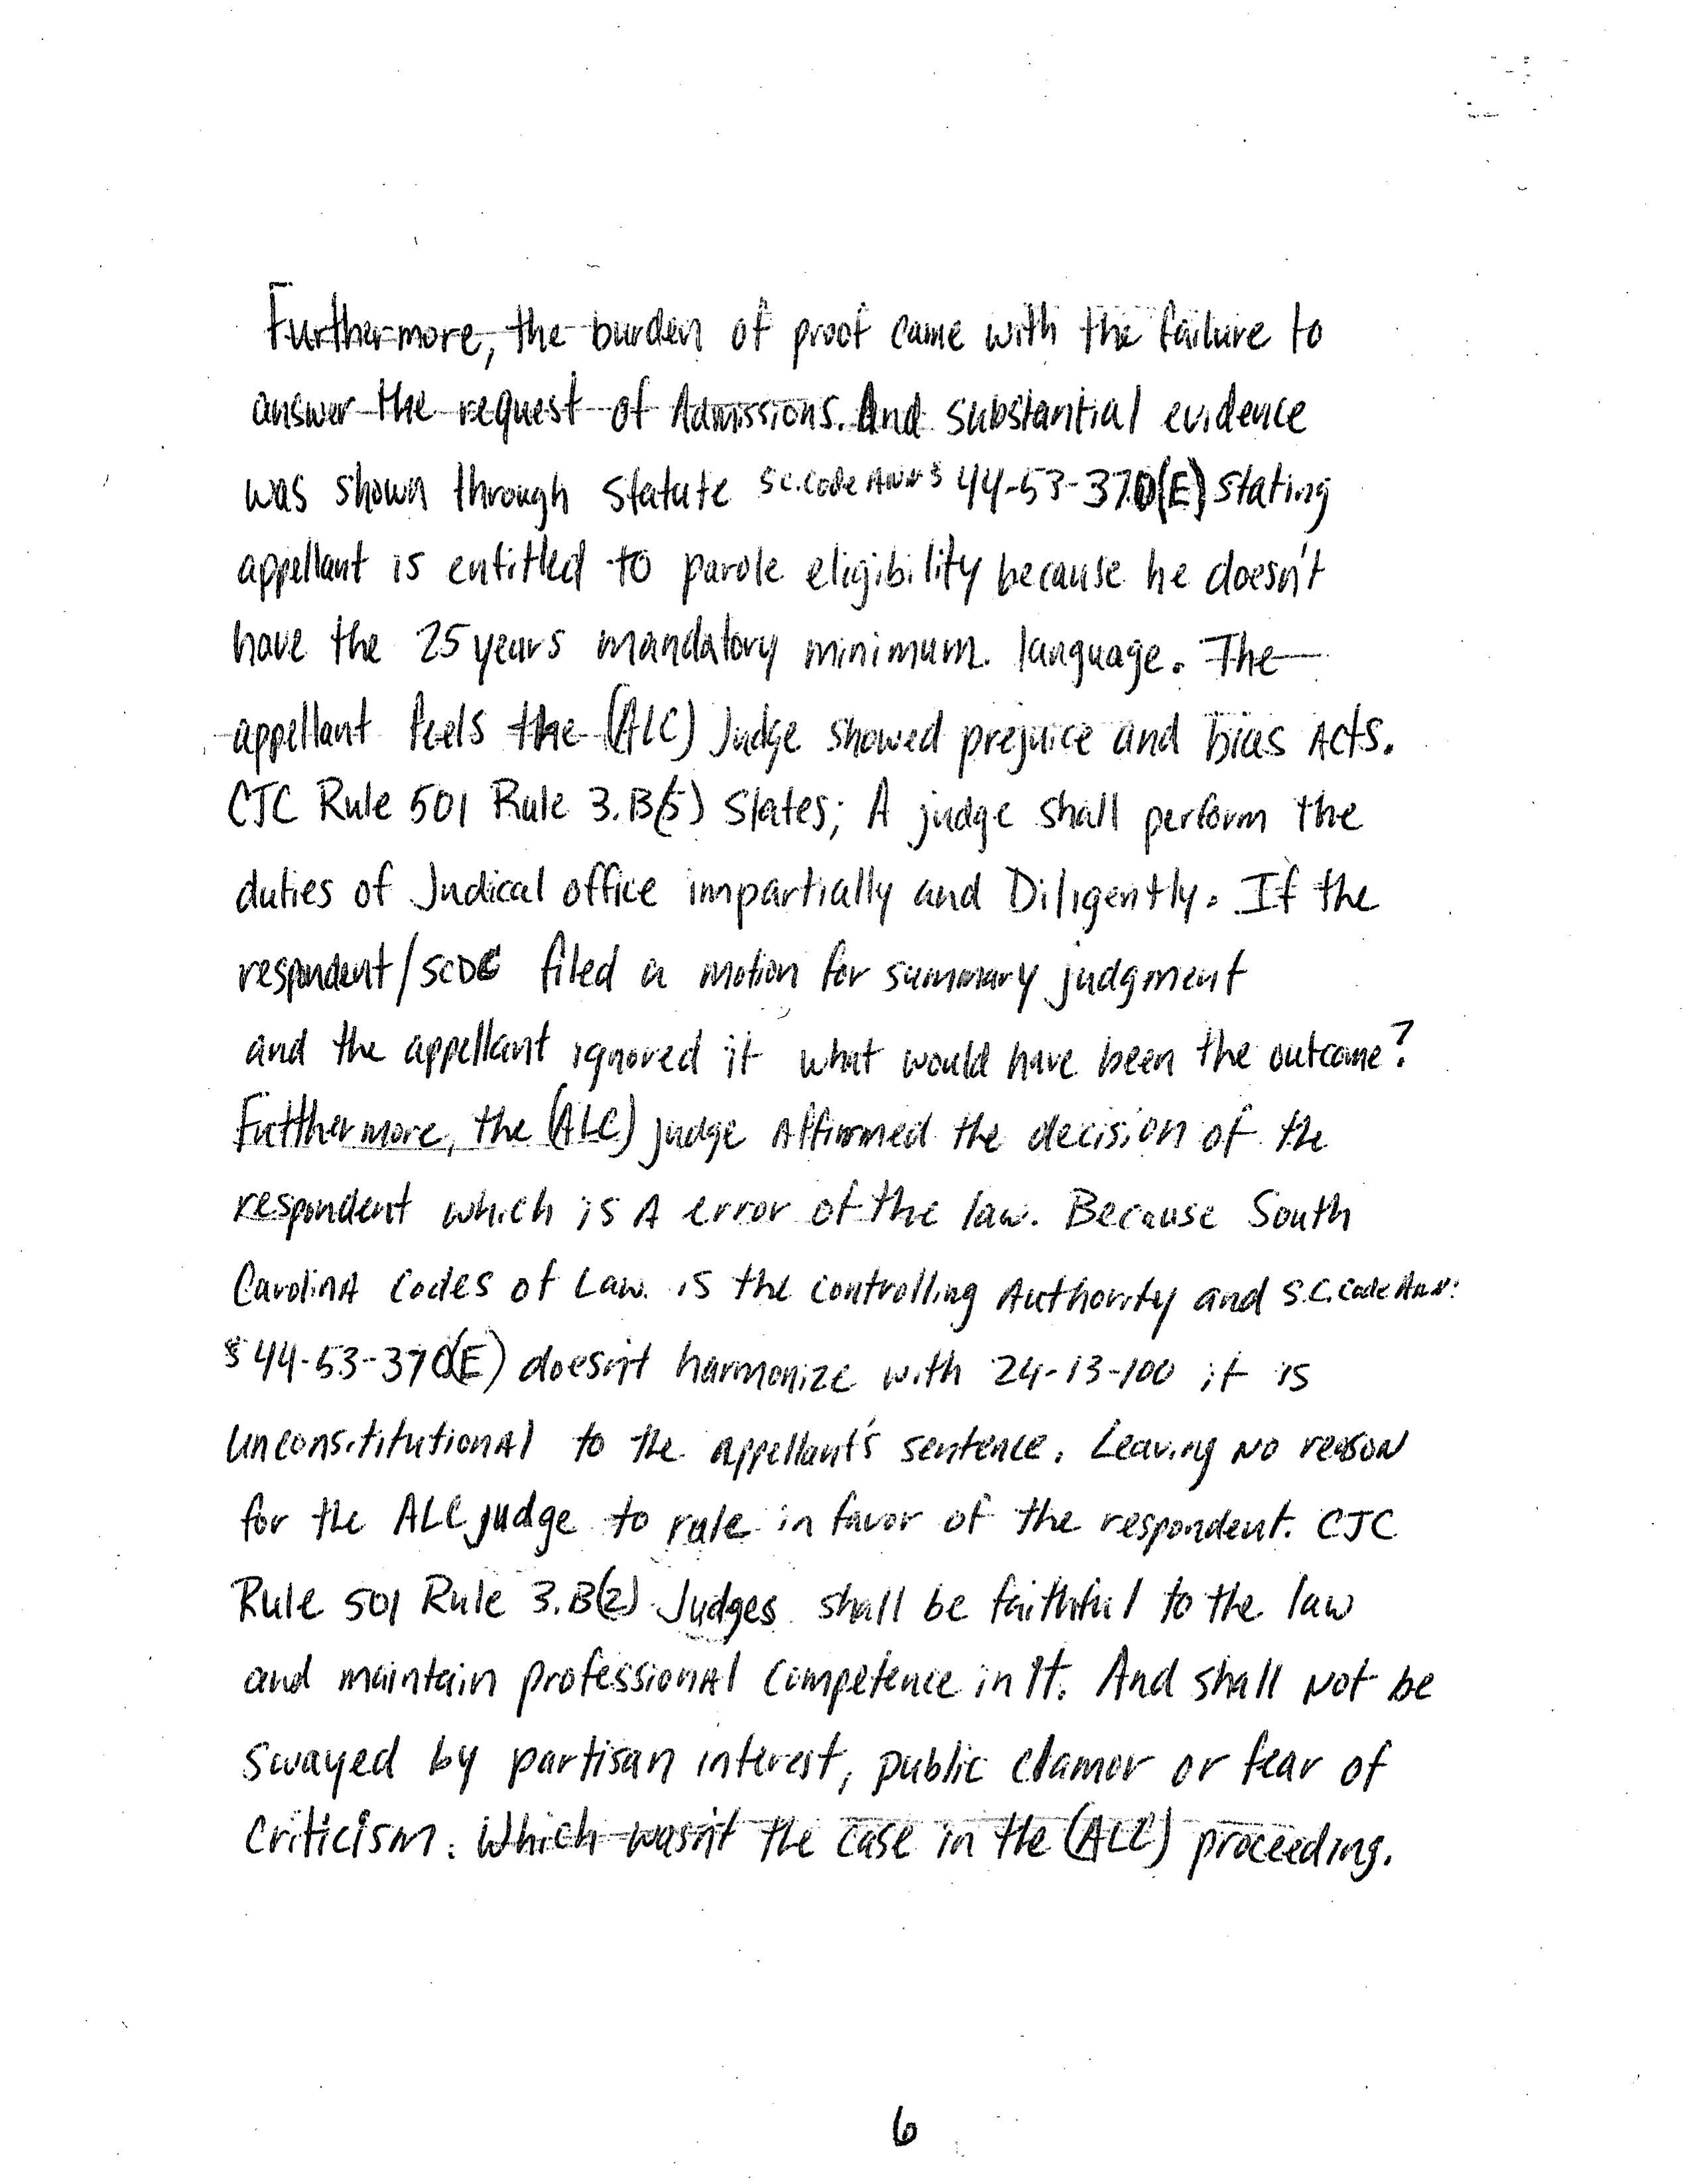 Furthermore, the burden of proof came with the failure to
answer the request of Admissions. And substantial evidence
was shown through statute S.C. Code Ann § 44-53-370(E) stating
appellant is entitled to parole eligibility because he doesn't
have the 25 years mandatory minimum. language. The
appellant feels the (ALC) Judge showed prejuice and bias Acts.
CJC Rule 501 Rule 3.B(5) States; A judge shall perform the
duties of Judical office impartially and Diligently. If the
respondent/SCDC filed a motion for summary judgment
and the appellant ignored it what would have been the outcome?
Futthermore, the (ALC) judge Affirmed the decision of the
respondent which is A error of the law. Because South
Carolina Codes of Law. is the controlling Authority and S.C. Code Ann:
§ 44-53-370(E) doesn't harmonize with 24-13-100 it is
Unconsititutional to the appellant's sentence. Leaving No reason
for the ALC judge to rule in favor of the respondent. CJC
Rule 501 Rule 3.B(2) Judges shall be faithful to the law
and maintain professional Competence in It. And shall Not be
swayed by partisan interest, public clamor or fear of
Criticism. Which wasn't the case in the (ALC) proceeding.
6